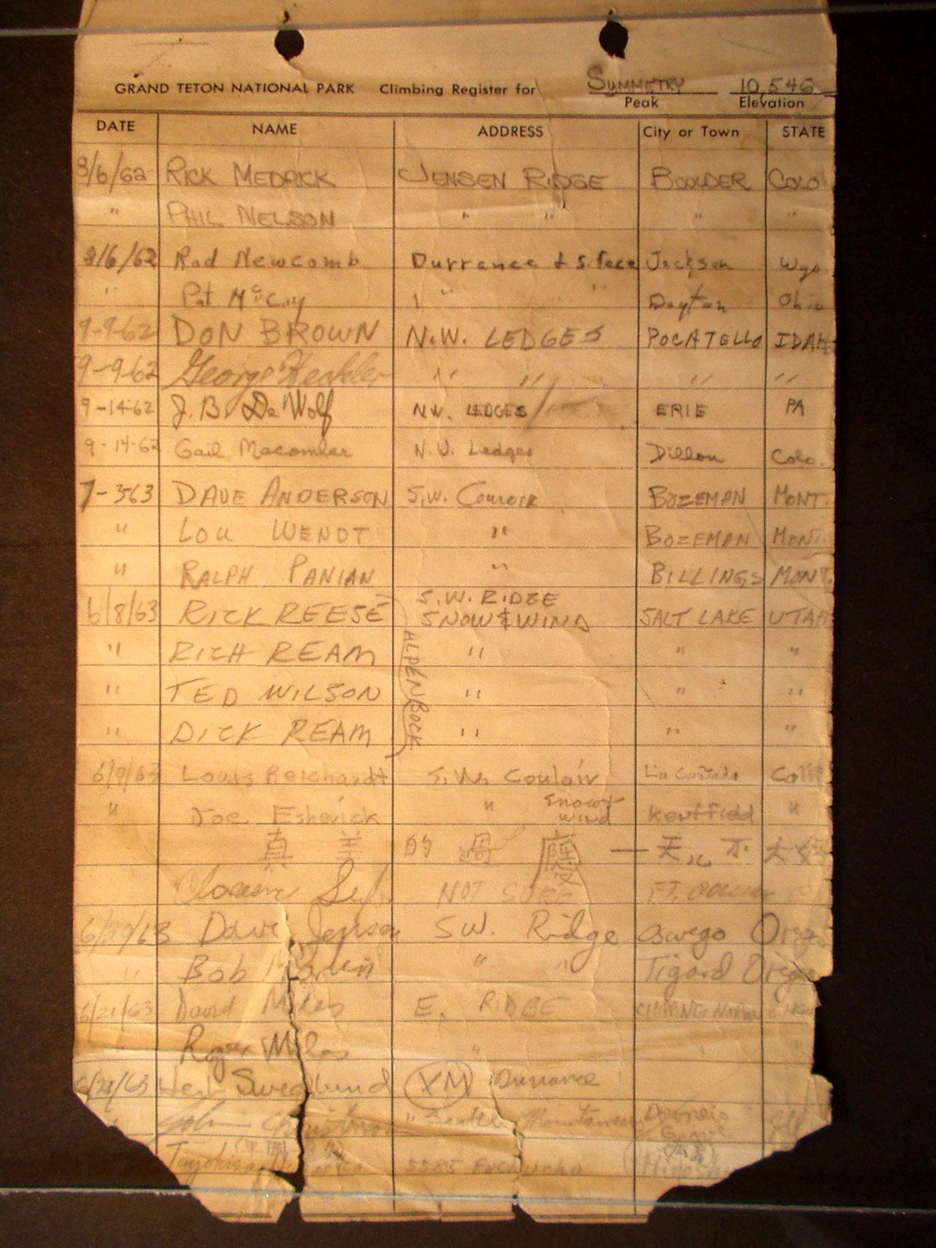 GRAND TETON NATIONAL PARK Climbing Register for SUMMETRY 10,546
Peak Elevation
DATE NAME ADDRESS City or Town STATE
8/6/62 RICK MEDRICK JENSEN RIDGE BOULDER COLO
" PHIL NELSON " " " "
8/6/62 Rod Newcomb Durrance & S. face Jackson Wyo
" Pat McCoy " " Dayton Ohio
9-9-62 DON BROWN N.W. LEDGES POCATELLO IDAH
9-9-62 George " " " "
9-14-62 J.B. DeWolf N.W. LEDGES ERIE PA
9-14-62 Gail Macomber N.W. Ledges Dillon Colo.
7-3-63 DAVE ANDERSON S.W. Couloir BOZEMAN MONT.
" LOU WENDT " BOZEMAN MONT.
" RALPH PANIAN " BILLINGS MONT.
S.W. RIDGE
6/8/63 RICK REESE SNOW & WIND SALT LAKE UTAH
" RICH REAM " " "
" TED WILSON " " "
" DICK REAM " " "
ALPENBOCK
6/9/63 Louis Reichardt S.W. Couloir La Cañada Calif
" Joe Esherick " Snow & wind Kentfield "
真 善 的
NOT SURE FT.
Dave Jensen SW. Ridge Oswego Oreg
" Bob " " Tigard Oreg
6/21/63 David Miles E. RIDGE
Roger Miles " "
6/28/63 Swedlund Durrance
John " Seattle Mountaineers
5585